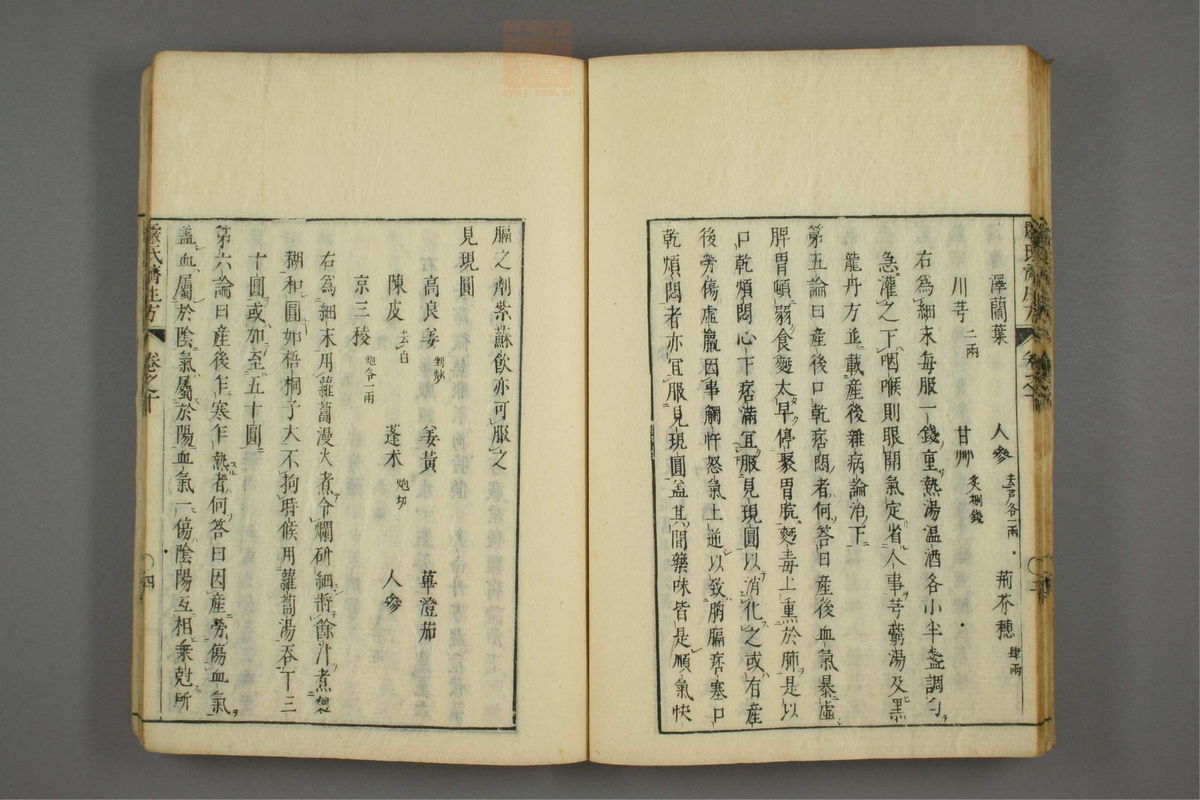 澤蘭葉 人參 去芦各一兩 荊芥穗 肆兩
川芎 二兩 甘艸 炙捌錢
右爲細末每服一錢重熱湯温酒各小半盞調勻
急灌之下咽喉則眼開氣定省人事芎藭湯及黑
龍丹方並載産後雜病論治下
第五論曰産後口乾痞悶者何答曰産後血氣暴虛
脾胃頓弱食麪太早停聚胃脘麪毒上熏於肺是以
口乾煩悶心下痞滿宜服見現圓以消化之或有産
後勞傷虛羸因事觸忤怒氣上逆以致胸膈痞塞口
乾煩悶者亦宜服見現圓盖其間藥味皆是順氣快
膈之劑紫蘇飲亦可服之
見現圓
高良姜 剉炒 姜黃 蓽澄茄
陳皮 去白 人參
京三稜 炮各一兩 蓬朮 炮切
右爲細末用蘿蔔漫火煮令爛研細將餘汁煮麪
糊和圓如梧桐子大不拘時候用蘿蔔湯吞下三
十圓或加至五十圓
第六論曰産後乍寒乍熱者何答曰因産勞傷血氣
盖血屬於陰氣屬於陽血氣一傷陰陽互相乗尅所
嚴氏濟生方 卷之十 四